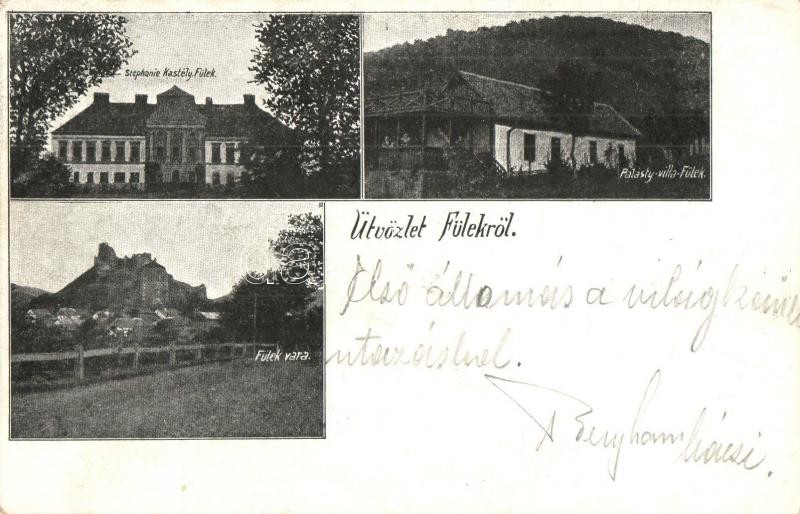 Stephanie Kastély, Fülek.
Palásty-villa-Fülek.
Fülek vára.
Üdvözlet Fülekről.
Első állomás a világkörüli
utazásból.
A Benyham bácsi.